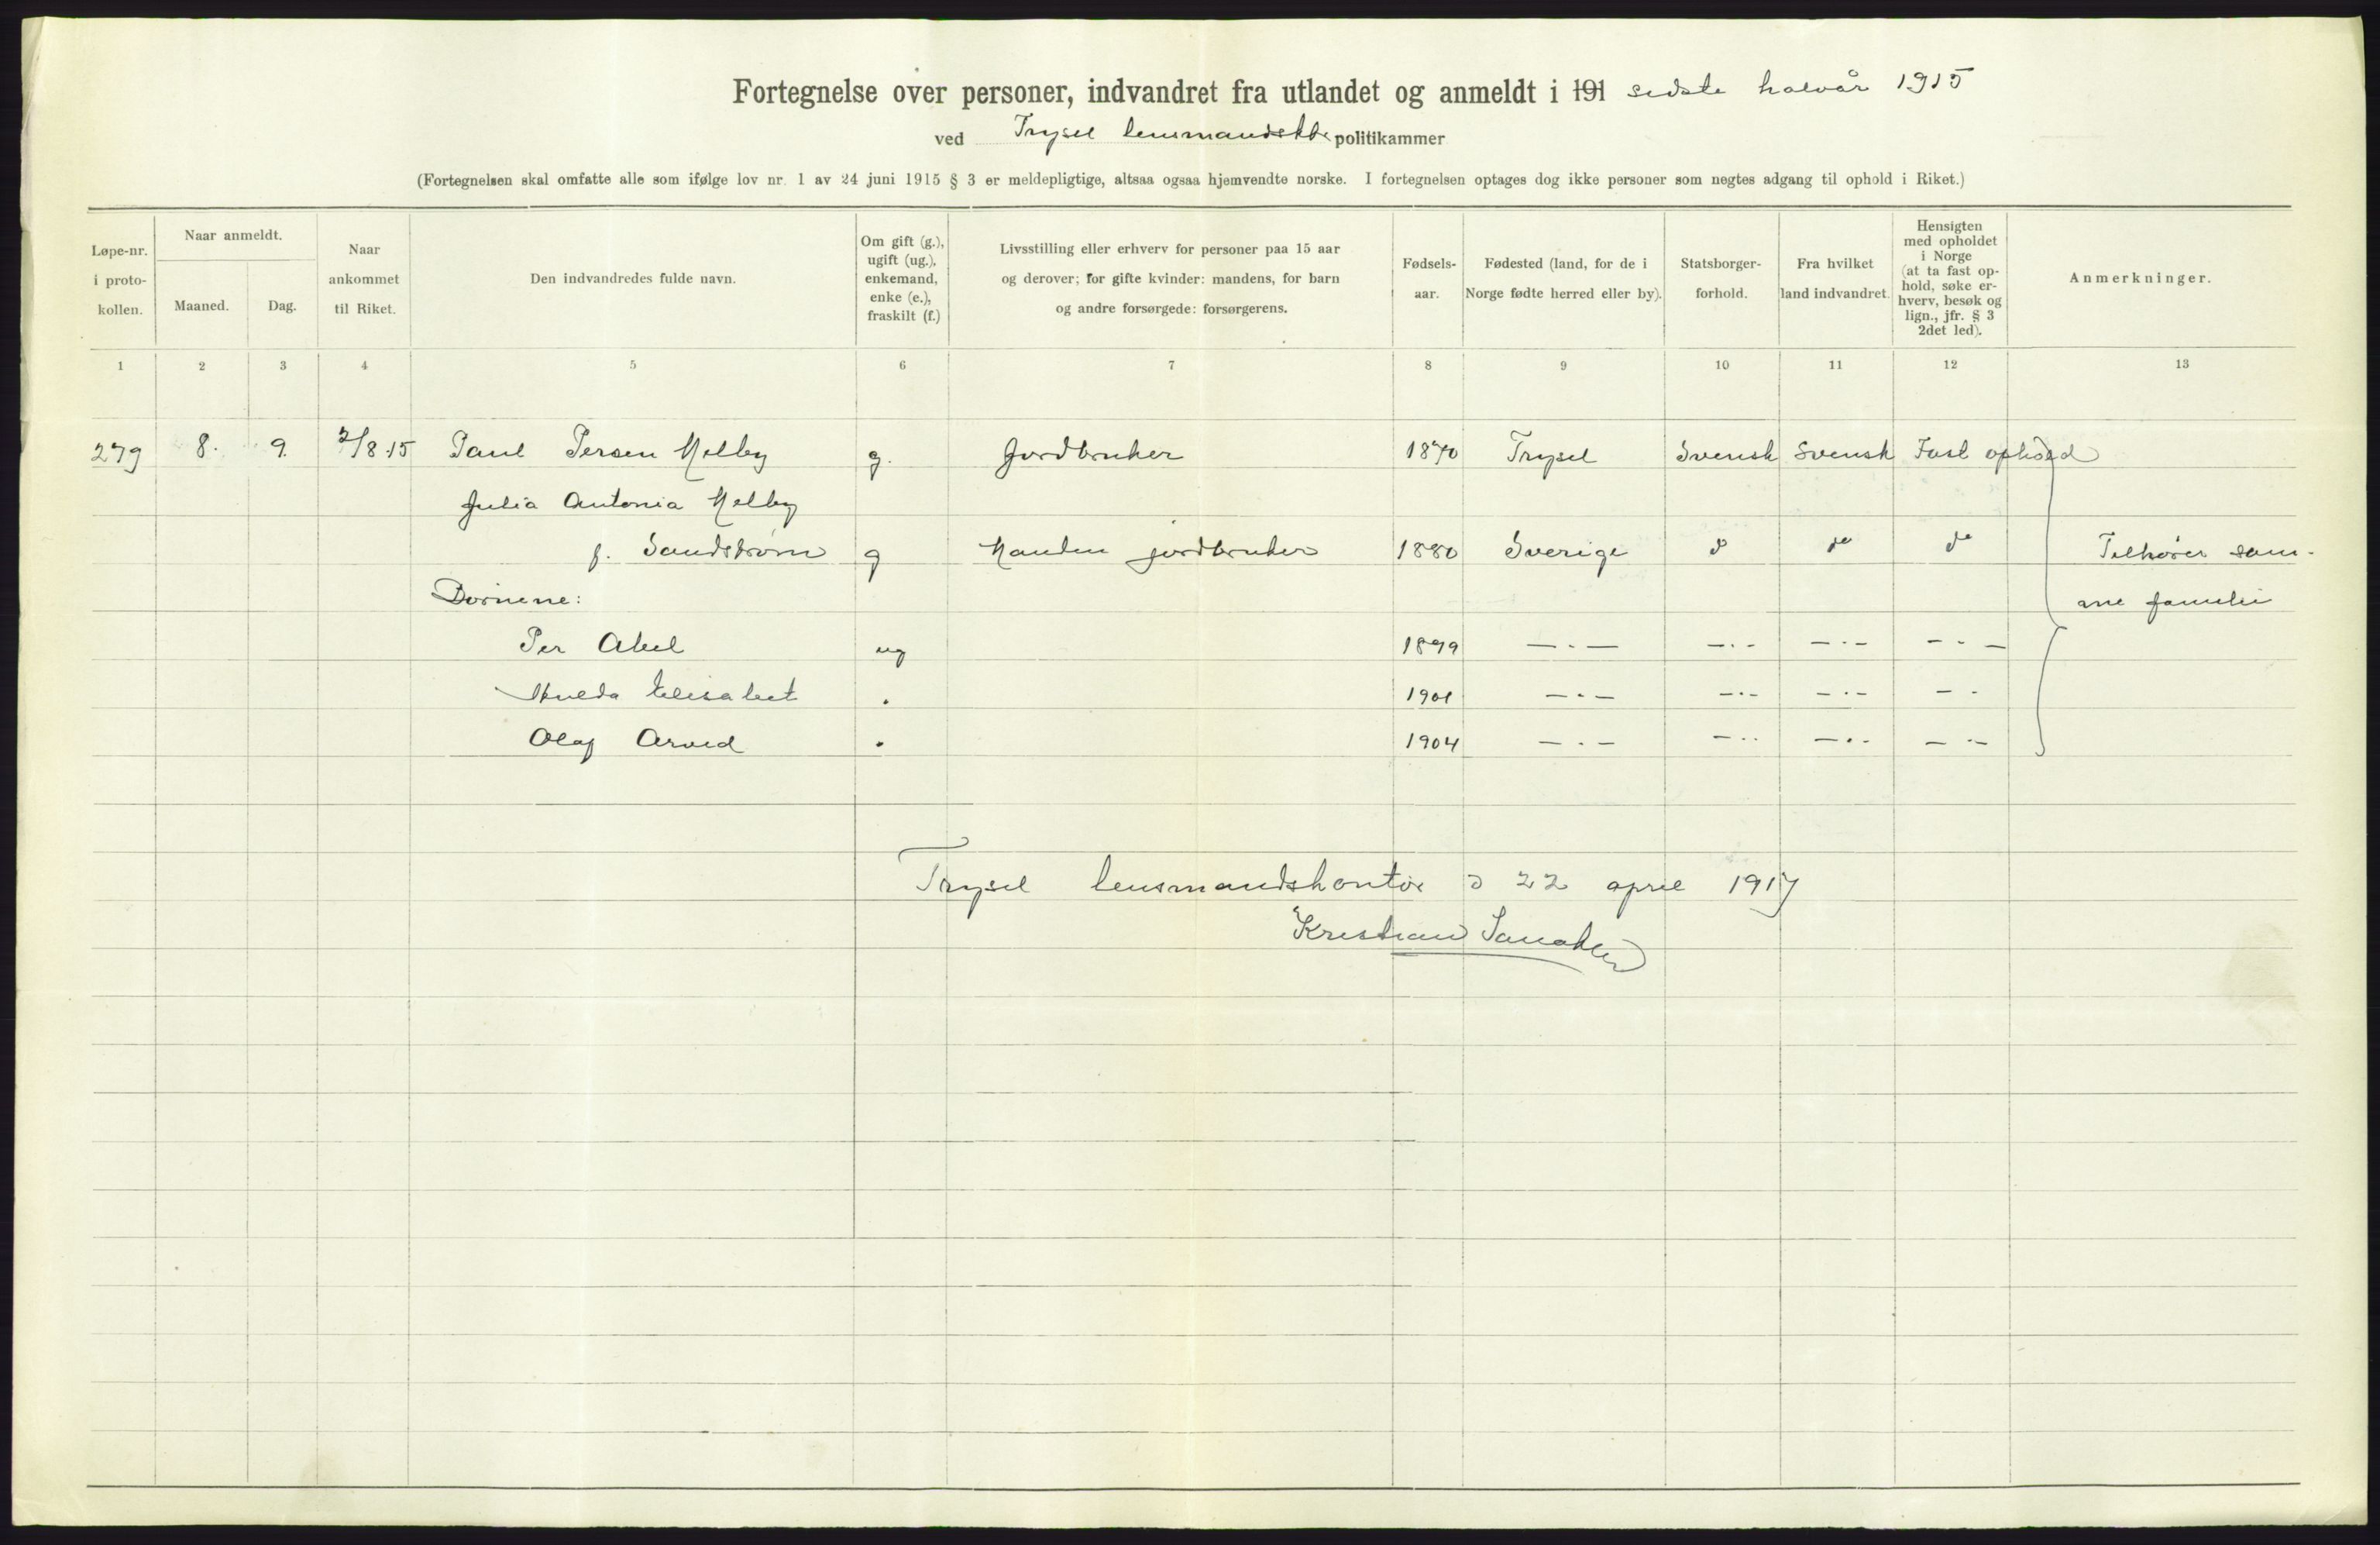 Fortegnelse over personer, indvandret fra utlandet og anmeldt i 191 sidste halvår 1915
ved Trysil lensmandsktr politikammer
(Fortegnelsen skal omfatte alle som ifølge lov nr. 1 av 24 juni 1915 § 3 er meldepligtige, altsaa ogsaa hjemvendte norske. I fortegnelsen optages dog ikke personer som negtes adgang til ophold i Riket.)
Løpe-nr. i proto-kollen.
Naar anmeldt.
Maaned.
Dag.
Naar ankommet til Riket.
Den indvandredes fulde navn.
Om gift (g.), ugift (ug.), enkemand, enke (e.), fraskilt (f.)
Livsstilling eller erhverv for personer paa 15 aar og derover; for gifte kvinder: mandens, for barn og andre forsørgede: forsørgerens.
Fødsels-aar.
Fødested (land, for de i Norge fødte herred eller by).
Statsborger-forhold.
Fra hvilket land indvandret.
Hensigten med opholdet i Norge (at ta fast op-hold, søke er-hverv, besøk og lign., jfr. § 3 2det led).
Anmerkninger.
1 2 3 4 5 6 7 8 9 10 11 12 13
279 8. 9. 2/8.15 Paul Persen Melby g. Jordbruker 1870 Trysil Svensk Svensk Fast ophold
Julia Antonia Melby
f. Sandstrøm g Manden jordbruker 1880 Sverige do do do Tilhører sam-
Børnene: me familie
Per Abel ug 1899 — . — — . - — . — — - —
Hulda Elisabet . 1901 — . — — . - — . — — -
Olaf Arvid . 1904 — . — — . . — . - — - —
Trysil lensmandskontor d 22 april 1917
Kristian